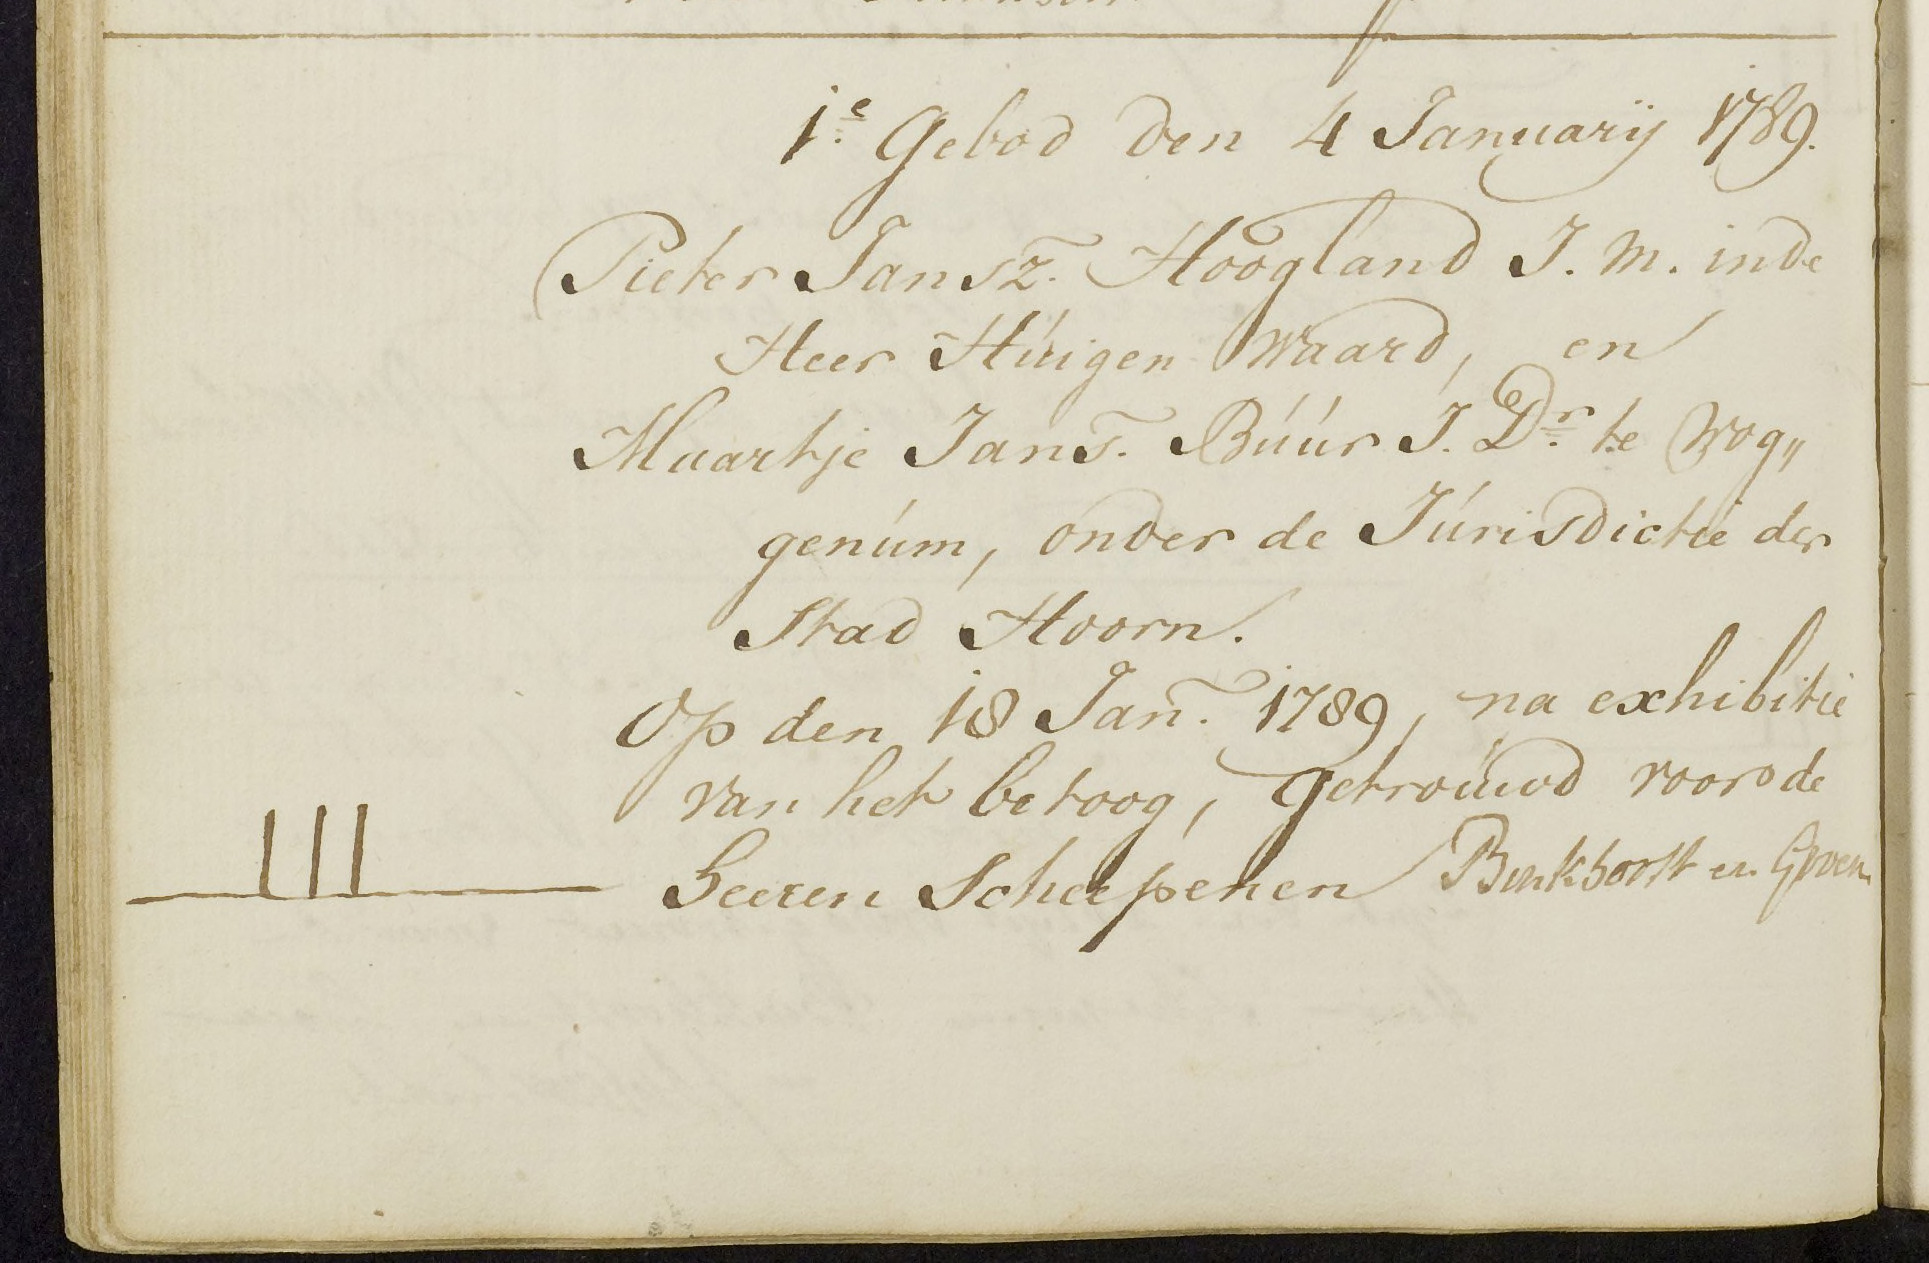 1e. Gebod den 4 Januarij 1789.
Pieter Jansz. Hoogland J. M. in de
Heer Huigen Waard, en
Maartje Jans. Buur J. Dr. te Wog„
genum, onder de Jurisdictie der
Stad Hoorn.
Op den 18 Jan. 1789, na exhibitie
van het betoog, getrouwd voor de
Heeren Scheepenen Benkhorst en Groen